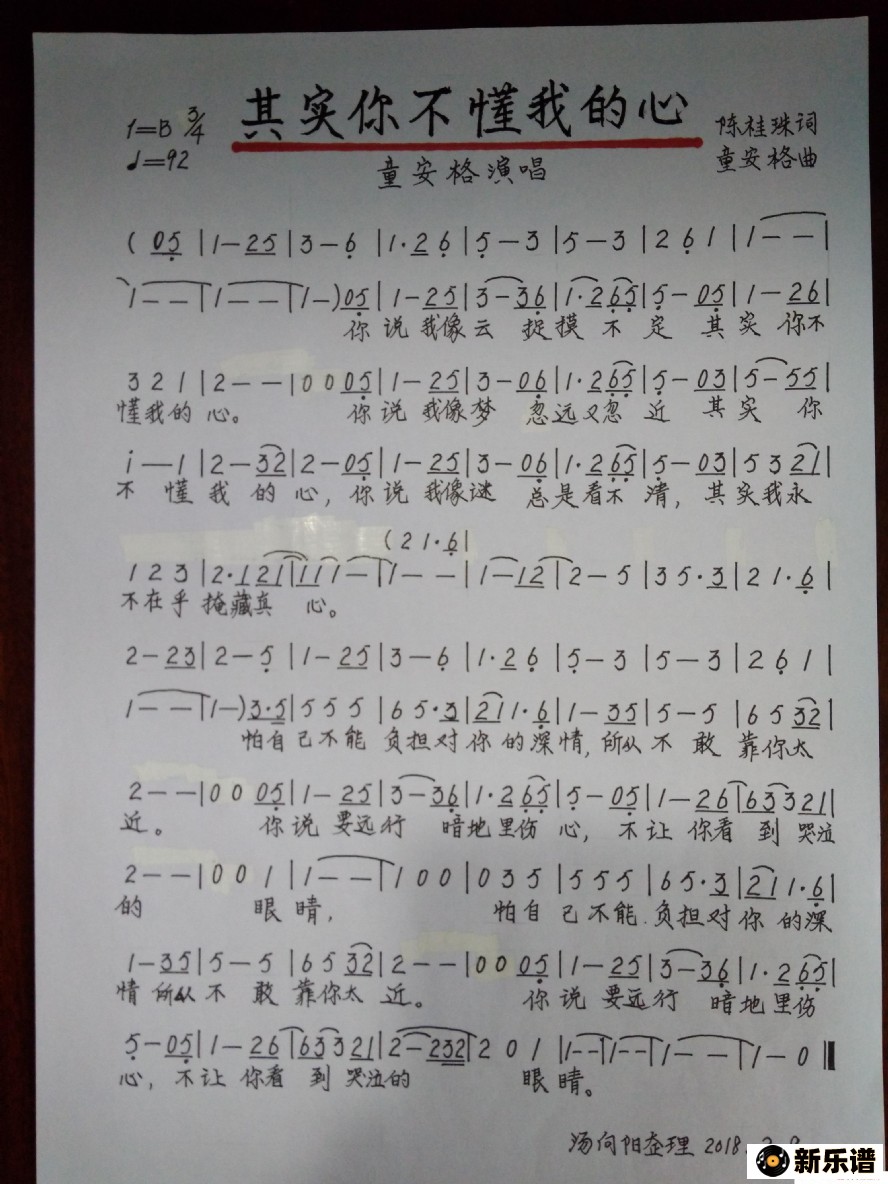 其实你不懂我的心
1=B 3/4
♩=92
陈桂珠词
童安格曲
童安格演唱
( 05 | 1—25 | 3—6 | 1·26 | 5—3 | 5—3 | 261 | 1—— |
1—— | 1—— | 1—)05 | 1—25 | 3—36 | 1·265 | 5—05 | 1—26 |
你说我像云 捉摸不定 其实你不
321 | 2—— | 0005 | 1—25 | 3—06 | 1·265 | 5—03 | 5—55 |
懂我的心。 你说我像梦 忽远又忽近 其实你
i—1 | 2—32 | 2—05 | 1—25 | 3—06 | 1·265 | 5—03 | 5321 |
不懂我的心，你说我像谜 总是看不清，其实我永
(21·6|
123 | 2·121 | 111— | 1—— | 1—12 | 2—5 | 35·3 | 21·6 |
不在乎掩藏真心。
2—23 | 2—5 | 1—25 | 3—6 | 1·26 | 5—3 | 5—3 | 261 |
1—— | 1—)3·5 | 555 | 65·3 | 211·6 | 1—35 | 5—5 | 6532 |
怕自己不能 负担对你的深情，所以不敢靠你太
2—— | 0005 | 1—25 | 3—36 | 1·265 | 5—05 | 1—26 | 63321 |
近。 你说要远行 暗地里伤心，不让你看到哭泣
2—— | 001 | 1—— | 100 | 035 | 555 | 65·3 | 211·6 |
的 眼睛， 怕自己不能负担对你的深
1—35 | 5—5 | 6532 | 2—— | 0005 | 1—25 | 3—36 | 1·265 |
情所以不敢靠你太近。 你说要远行 暗地里伤
5—05 | 1—26 | 63321 | 2—232 | 201 | 1—— | 1—— | 1—— | 1—0 ‖
心，不让你看到哭泣的 眼睛。
汤向阳整理 2018.
新乐谱